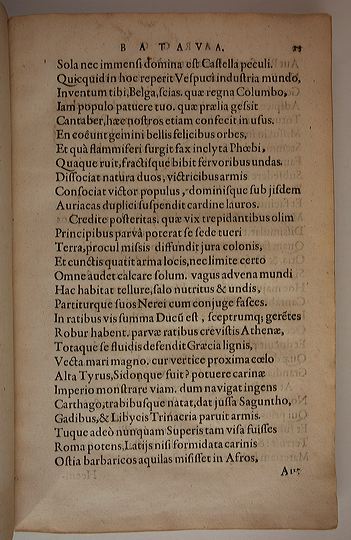 BATAVA. 23
Sola nec immensi domina est Castella peculi.
Quicquid in hoc reperit Vespuci industria mundo,
Inventum tibi, Belga, scias. quæ regna Columbo,
Jam populo patuere tuo. quæ prælia gessit
Cantaber, hæc nostros etiam confecit in usus.
En coëunt gemini bellis felicibus orbes,
Et quà flammiferi surgit fax inclyta Phœbi,
Quaque ruit, fractisque bibit fervoribus undas.
Dissociat natura duos, victricibus armis
Consociat victor populus, dominisque sub jisdem
Auriacas duplici suspendit cardine lauros.
Credite posteritas. quæ vix trepidantibus olim
Principibus parvâ poterat se sede tueri
Terra, procul missis diffundit jura colonis,
Et cunctis quatit arma locis, nec limite certo
Omne audet calcare solum. vagus advena mundi
Hac habitat tellure, salo nutritus & undis,
Partiturque suos Nerei cum conjuge fasces.
In ratibus vis summa Ducũ est, sceptrumq; gerẽtes
Robur habent. parvæ ratibus crevistis Athenæ,
Totaque se fluidis defendit Græcia lignis,
Vecta mari magno. cur vertice proxima cœlo
Alta Tyrus, Sidonque fuit? potuere carinæ
Imperio monstrare viam. dum navigat ingens
Carthago, trabibusque natat, dat jussa Sagunto,
Gadibus, & Libycis Trinacria paruit armis.
Tuque adeò nunquam Superis tam visa fuisses
Roma potens, Latijs nisi formidata carinis
Ostia barbaricos aquilas misisset in Afros,